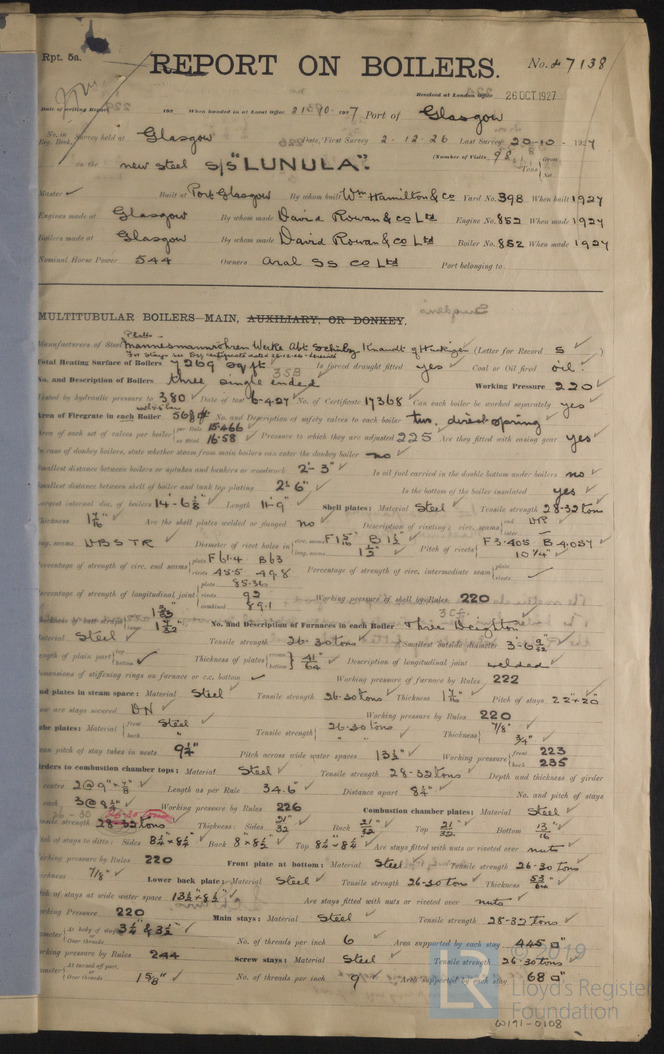 Rpt. 5a.
REPORT ON BOILERS.
No. 47138
Received at London Office 26 OCT 1927
Date of writing Report 192 When handed in at Local Office 21.10.1927 Port of Glasgow
No. in Reg. Book. Survey held at Glasgow Date, First Survey 2-12-26 Last Survey 20-10-1927
on the new steel S/S "LUNULA". (Number of Visits 98) Gross Tons Net
Master Built at Port Glasgow By whom built Wm Hamilton & Co Yard No. 398 When built 1927
Engines made at Glasgow By whom made David Rowan & Co Ltd Engine No. 852 When made 1927
Boilers made at Glasgow By whom made David Rowan & Co Ltd Boiler No. 852 When made 1927
Nominal Horse Power 544 Owners Aral SS Co Ltd Port belonging to
MULTITUBULAR BOILERS MAIN, AUXILIARY, OR DONKEY.
Manufacturers of Steel Plates Mannesmannröhren Werke Abt Schulz Knaudt (Letter for Record S)
Total Heating Surface of Boilers 7269 sq ft 3SB Is forced draught fitted yes Coal or Oil fired oil
No. and Description of Boilers three single ended Working Pressure 220
Tested by hydraulic pressure to 380 Date of test 6-4-27 No. of Certificate 17368 Can each boiler be worked separately yes
Area of Firegrate in each Boiler No. and Description of safety valves to each boiler two, direct spring
Area of each set of valves per boiler per Rule 15.466 as fitted 16.58 Pressure to which they are adjusted 225 Are they fitted with easing gear yes
In case of donkey boilers, state whether steam from main boilers can enter the donkey boiler no
Smallest distance between boilers or uptakes and bunkers or woodwork 2'-3" Is oil fuel carried in the double bottom under boilers no
Smallest distance between shell of boiler and tank top plating 2'6" Is the bottom of the boiler insulated yes
Largest internal dia. of boilers 14'-6 1/8" Length 11'-9" Shell plates: Material Steel Tensile strength 28-32 tons
Thickness 1 7/16" Are the shell plates welded or flanged no Description of riveting: circ. seams end DR
long. seams DBSTR Diameter of rivet holes in circ. seams F 1 5/16" B 1 1/2" long. seams 1 1/2" Pitch of rivets F 3.405 B 4.037 10 1/4"
Percentage of strength of circ. end seams plate F 61.4 B 63 rivets 45.5 49.8 Percentage of strength of circ. intermediate seam plate rivets
Percentage of strength of longitudinal joint plate 85.36 rivets 92 combined 89.1 Working pressure of shell by Rules 220
No. and Description of Furnaces in each Boiler Three Deighton 3 C.f.
Material Steel Tensile strength 26-30 tons Smallest outside diameter 3'-6 3/32
Length of plain part top bottom Thickness of plates crown bottom 41/64 Description of longitudinal joint welded
Dimensions of stiffening rings on furnace or c.c. bottom Working pressure of furnace by Rules 222
End plates in steam space: Material Steel Tensile strength 26-30 tons Thickness 1 7/16" Pitch of stays 22" × 20"
How are stays secured DN Working pressure by Rules 220
Tube plates: Material front back Steel Tensile strength 26-30 tons Thickness 7/8" 3/4"
Mean pitch of stay tubes in nests 9 1/4" Pitch across wide water spaces 13 1/2" Working pressure front 223 back 235
Girders to combustion chamber tops: Material Steel Tensile strength 28-32 tons Depth and thickness of girder
centre 2 @ 9" × 7/8" Length as per Rule 34.6" Distance apart 8 1/4" No. and pitch of stays
each 3 @ 8 1/2" Working pressure by Rules 226 Combustion chamber plates: Material Steel
26-30
Tensile strength 28-32 tons 26-30 tons Thickness: Sides 21/32 Back 21/32 Top 21/32 Bottom 13/16
Pitch of stays to ditto: Sides 8 1/4" × 8 1/2" Back 8" × 8 1/2" Top 8 1/4" × 8 1/2" Are stays fitted with nuts or riveted over nuts
Working pressure by Rules 220 Front plate at bottom: Material Steel Tensile strength 26-30 tons
Thickness 7/8" Lower back plate: Material Steel Tensile strength 26-30 tons Thickness 53/64
Pitch of stays at wide water space 13 1/2" × 8 1/2" Are stays fitted with nuts or riveted over nuts
Working Pressure 220 Main stays: Material Steel Tensile strength 28-32 tons
Diameter At body of stay, or Over threads 3 1/4" & 3 1/2" No. of threads per inch 6 Area supported by each stay 445 □"
Working pressure by Rules 244 Screw stays: Material Steel Tensile strength 26-30 tons
Diameter At turned off part, or Over threads 1 5/8" No. of threads per inch 9 Area supported by each stay 68 □"
© 2019
LR Lloyd's Register Foundation
W191-0108